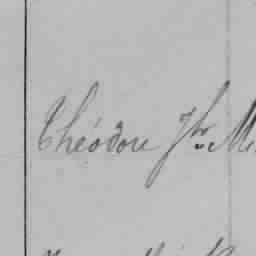 Théodore Jh. M